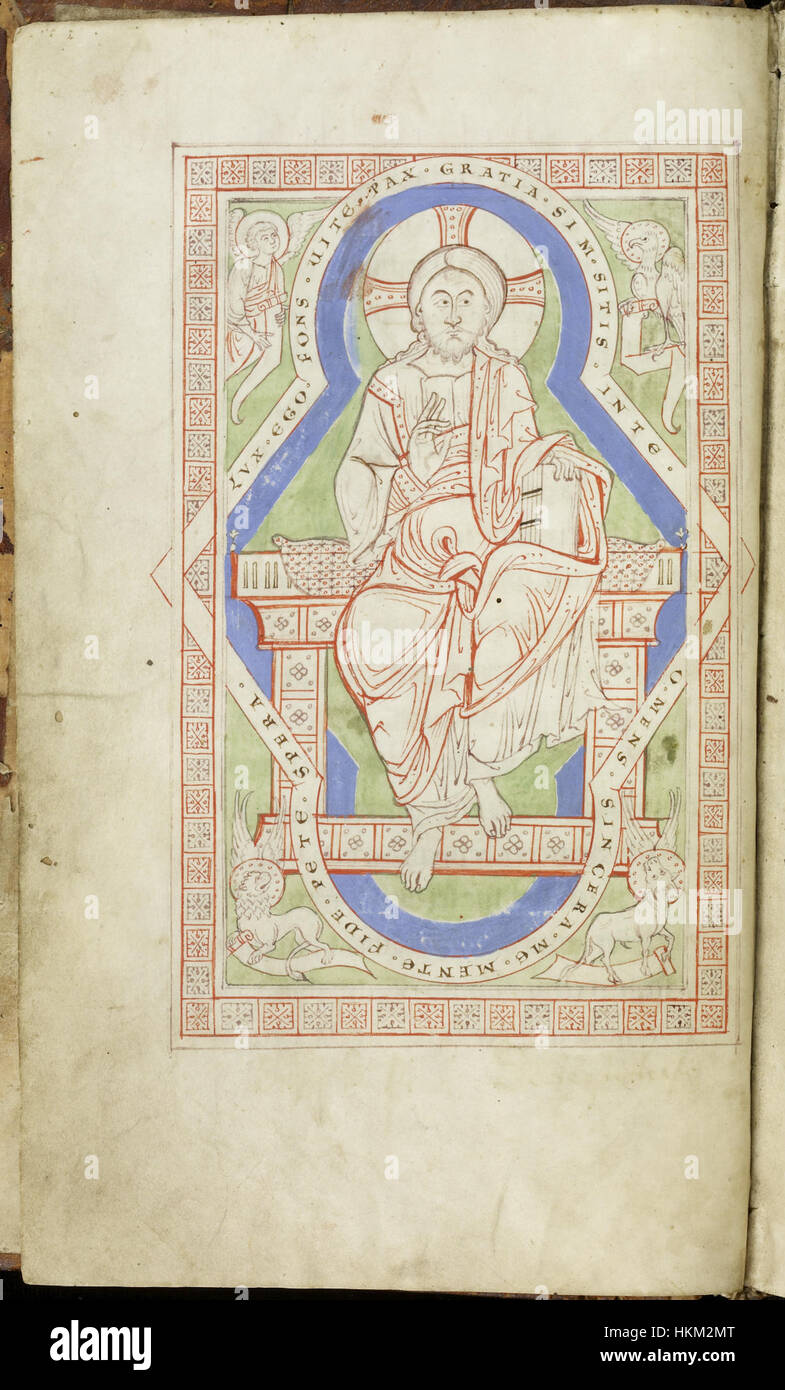 LVX · EGO · FONS · UITE · PAX · GRATIA · SIM · SITIS · INTE ·
O · MENS · SINCERA · ME · MENTE · FIDE · PETE · SPERA ·
a
alamy stock photo
HKM2MT
www.alamy.com